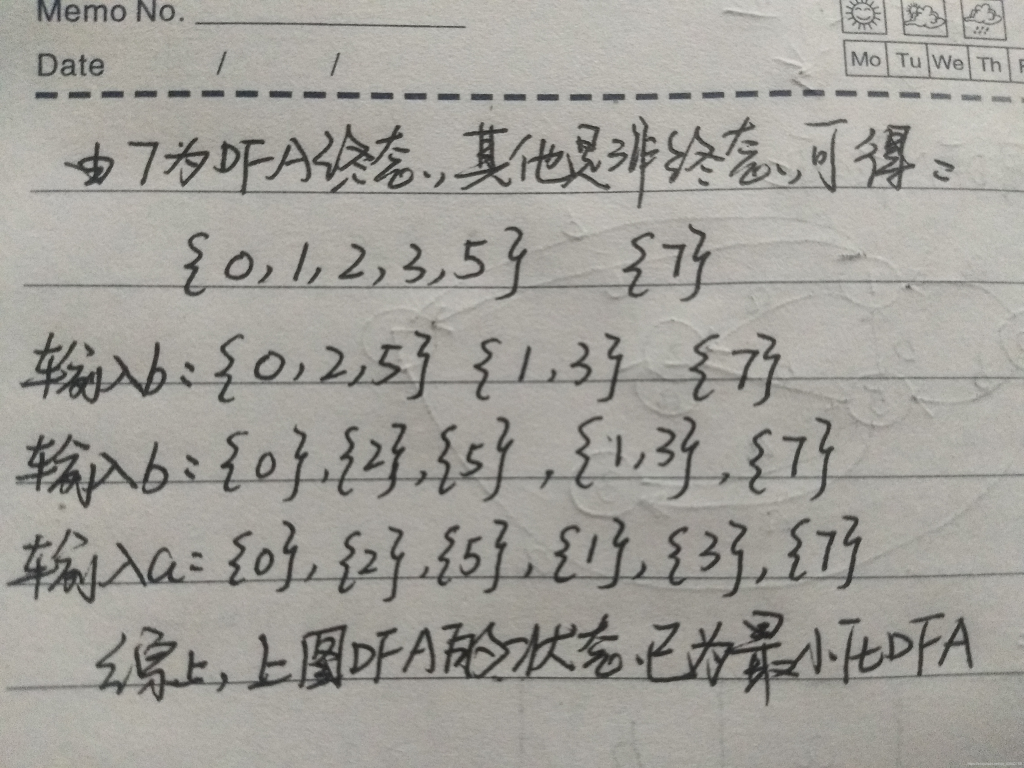 Memo No.
Mo Tu We Th F
Date / /
由7为DFA终态,其他是非终态,可得:
{0,1,2,3,5} {7}
输入b:{0,2,5} {1,3} {7}
输入b:{0},{2},{5},{1,3},{7}
输入a:{0},{2},{5},{1},{3},{7}
综上,上图DFA的状态已为最小化DFA